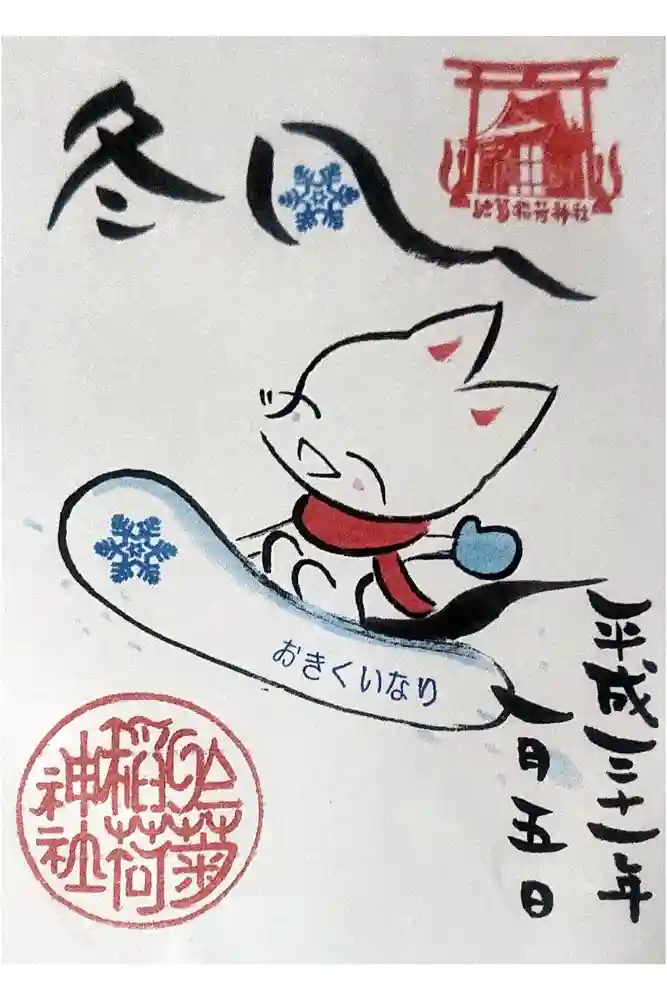 冬
於菊稲荷神社
おきくいなり
平成三十一年
一月五日
於菊
稲荷
神社